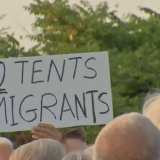 TENTS
MIGRANTS